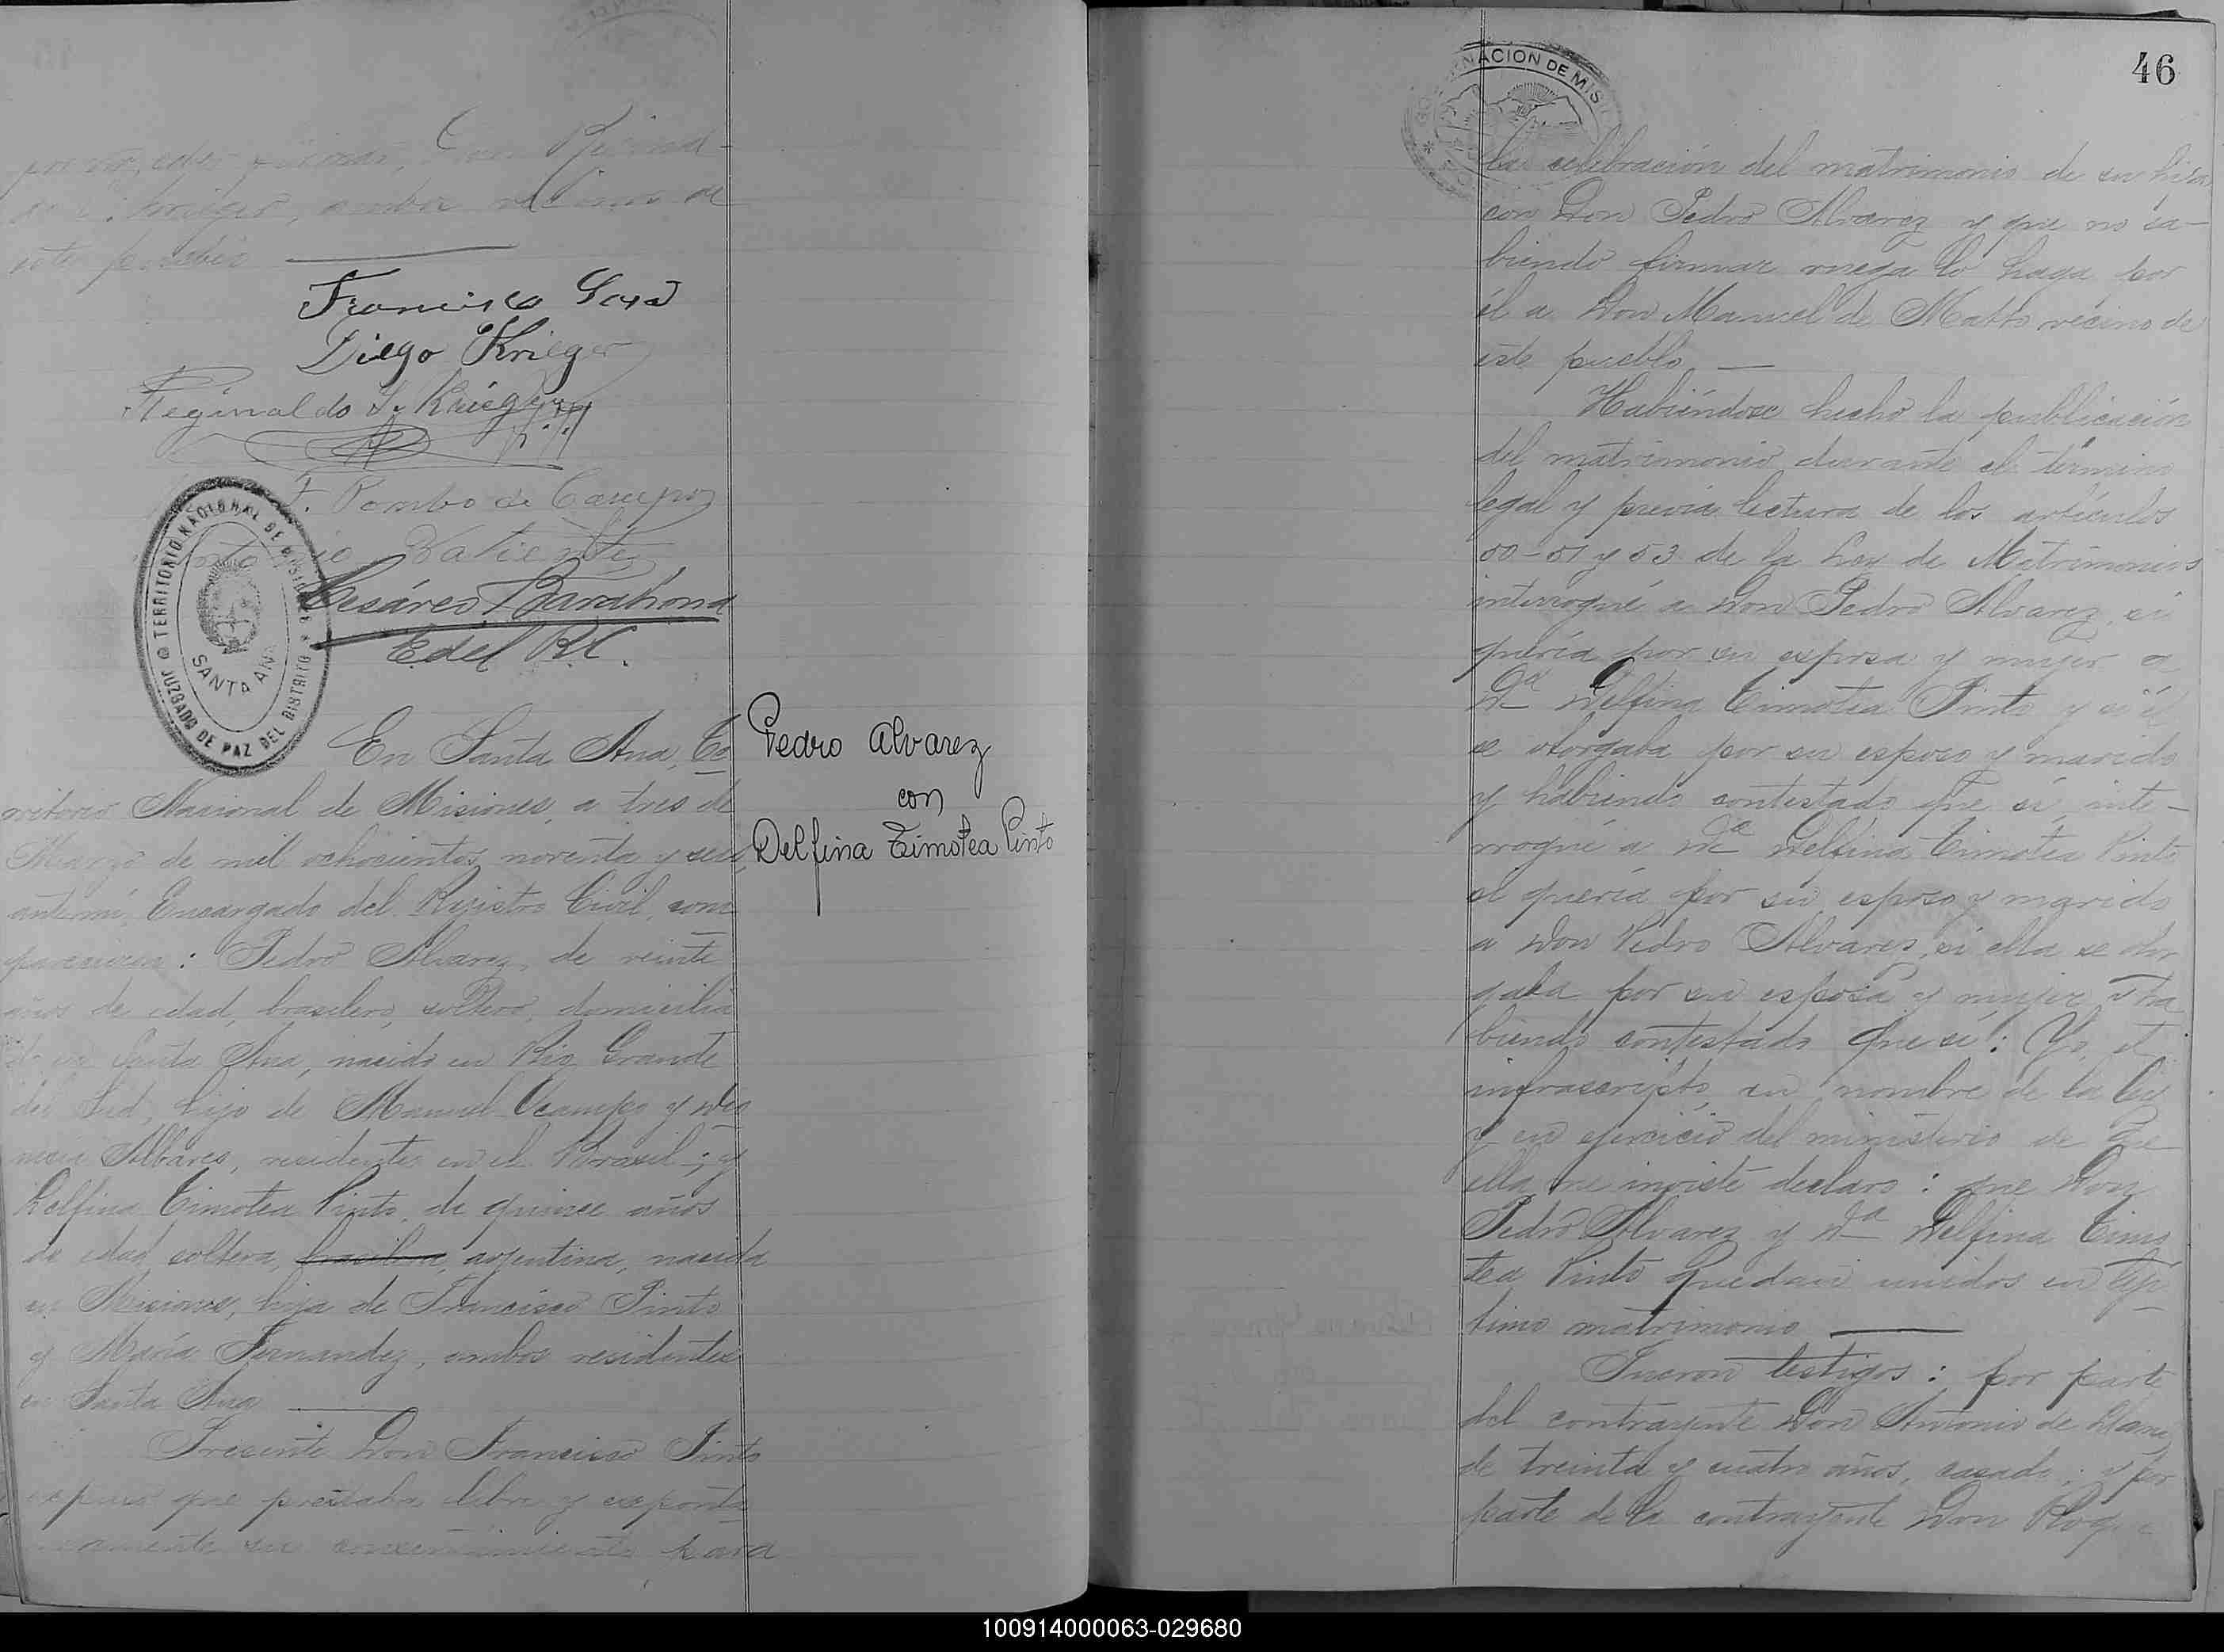 este pueblo
Francisco
Diego Krieger
Reginaldo S. Krieger
F. Pombo de Campos
Antonio Valiente
Cesáreo Barahona
E del R.C.
TERRITORIO NACIONAL DE MISIONES
JUZGADO DE PAZ DEL DISTRITO
SANTA ANA
En Santa Ana, Te
rritorio Nacional de Misiones, a tres de
Marzo de mil ochocientos noventa y seis,
ante mí, Encargado del Registro Civil, com
parecieron: Pedro Alvarez, de veinte
años de edad, brasilero, soltero, domicilia
do en Santa Ana, nacido en Rio Grande
del Sud, hijo de Manuel Ocampo y Dio
nisia Albares, residentes en el Brasil; y
Delfina Timotea Pinto, de quince años
de edad, soltera, brasilera, argentina, nacida
en Misiones, hija de Francisco Pinto
y María Fernandez, ambos residentes
en Santa Ana
Presente Don Francisco Pinto
expuso que prestaba libre y esponta
neamente su consentimiento para
Pedro Alvarez
con
Delfina Timotea Pinto
46
GOBERNACION DE MISIONES
la celebración del matrimonio de su hija
con Don Pedro Alvarez y que no sa-
biendo firmar ruega lo haga por
él a Don Manuel de Matto vecino de
este pueblo
Habiéndose hecho la publicación
del matrimonio durante el término
legal y previa lectura de los artículos
50-51 y 53 de la Ley de Matrimonios
interrogué a Don Pedro Alvarez, si
quería por su esposa y mujer a
Da Delfina Timotea Pinto y si él
se otorgaba por su esposo y marido
y habiendo contestado que sí, inte-
rrogué a Da Delfina Timotea Pinto
si quería por su esposo y marido
a Don Pedro Alvares, si ella se otor
gaba por su esposa y mujer y ha
biendo contestado que sí: Yo, el
infrascripto, en nombre de la ley
y en ejercicio del ministerio de que
ella me inviste declaro: que Don
Pedro Alvarez y Da Delfina Timo
tea Pinto quedan unidos en legí
timo matrimonio
Fueron testigos: por parte
del contrayente Don Antonio de
de treinta y cuatro años, casado; y por
parte de la contrayente Don Roque